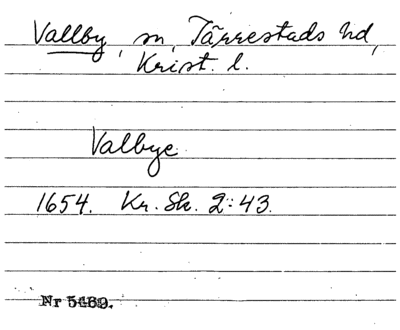 Vallby, sn, Tärrestads hd,
Krist. l.
Valbye
1654. Kr. Sk. 2:43.
Nr 5469.